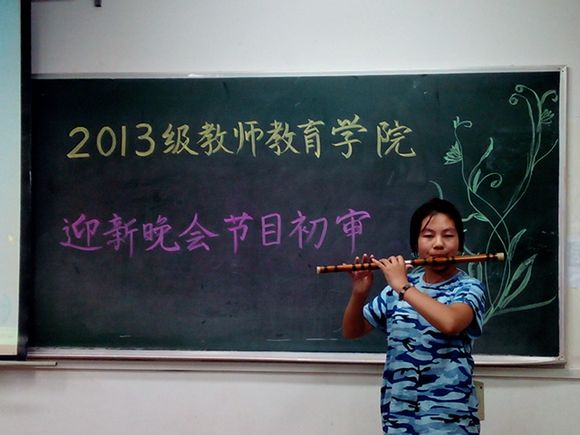 2013级教师教育学院
迎新晚会节目初审